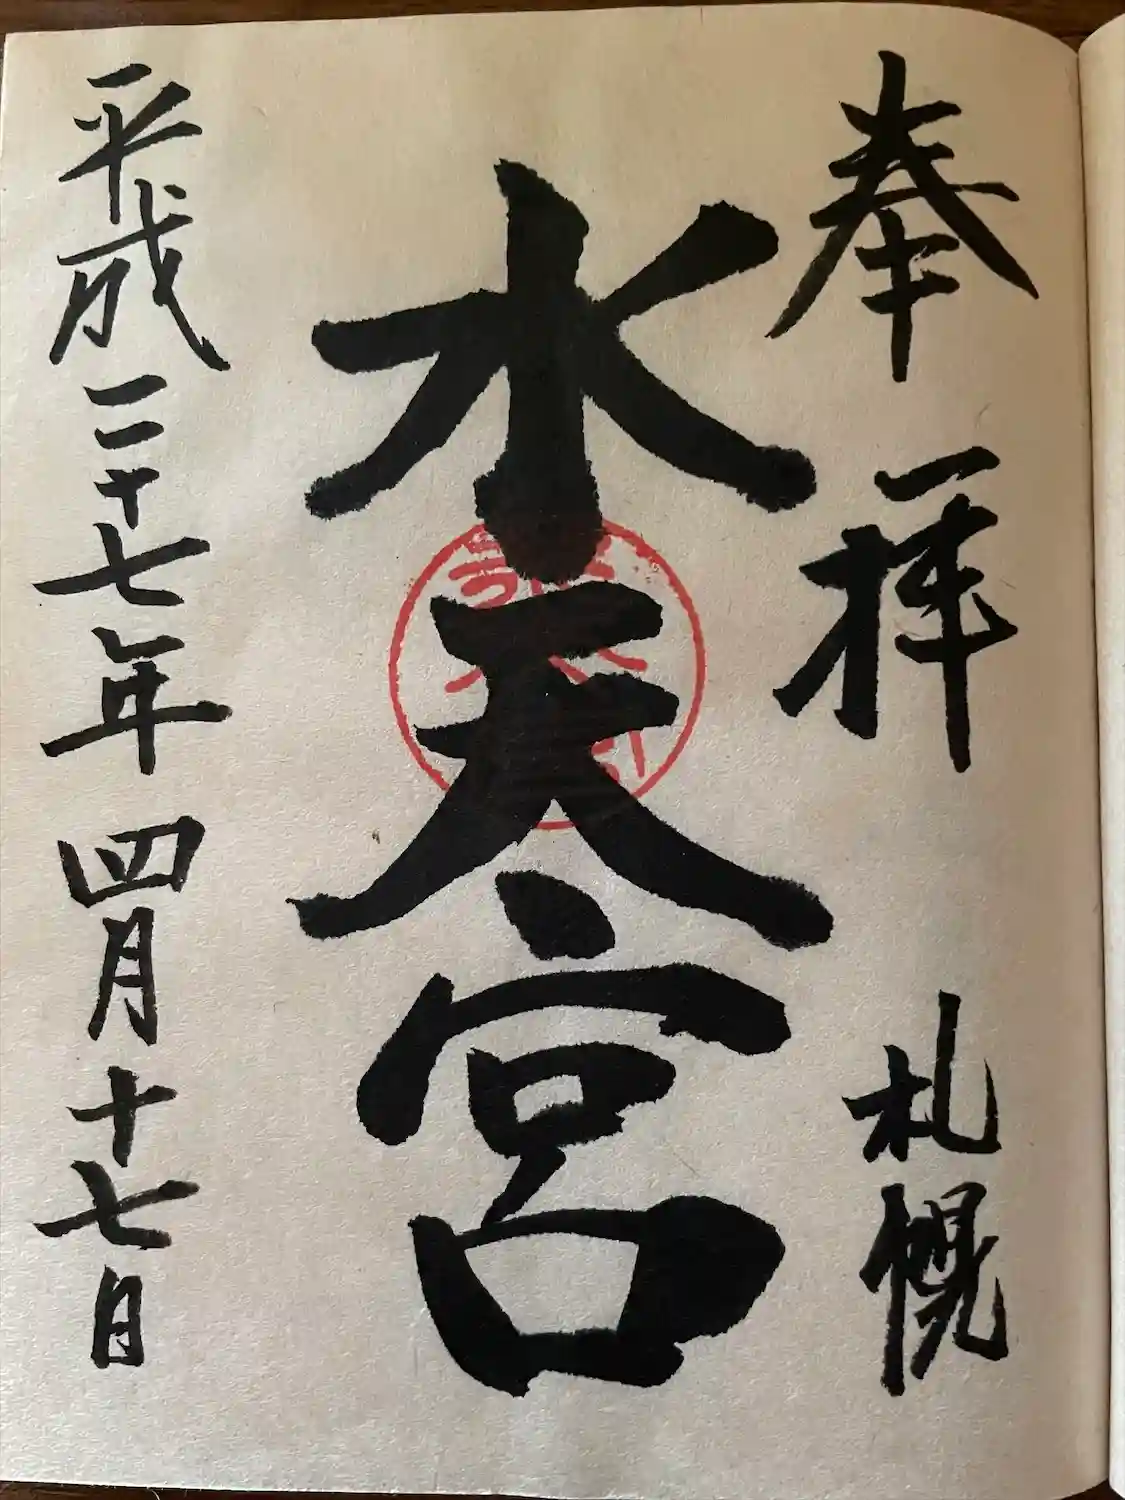 奉拝 札幌
水天宮
平成二十七年四月十七日